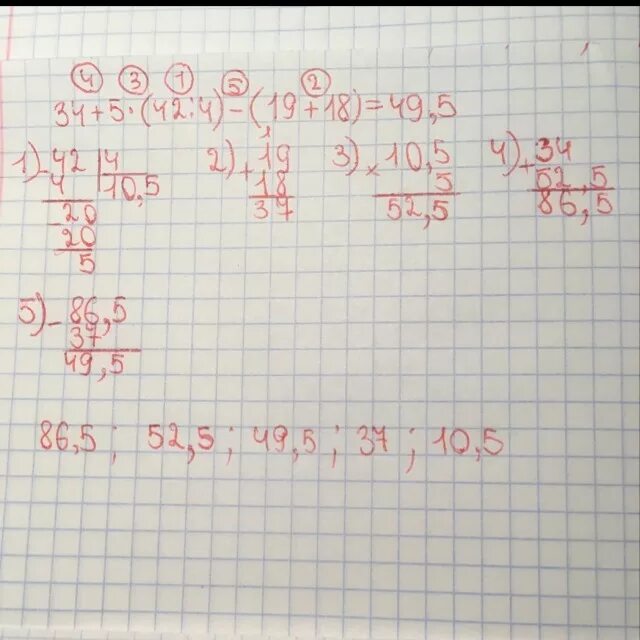 4 3 1 5 2
34+5·(42:4)-(19+18)=49,5
1) 42 | 4
- 4 | 10,5
20
- 20
5
2) 1
+ 19
18
37
3) × 10,5
5
52,5
4) + 34
52,5
86,5
5) - 86,5
37
49,5
86,5; 52,5; 49,5; 37; 10,5